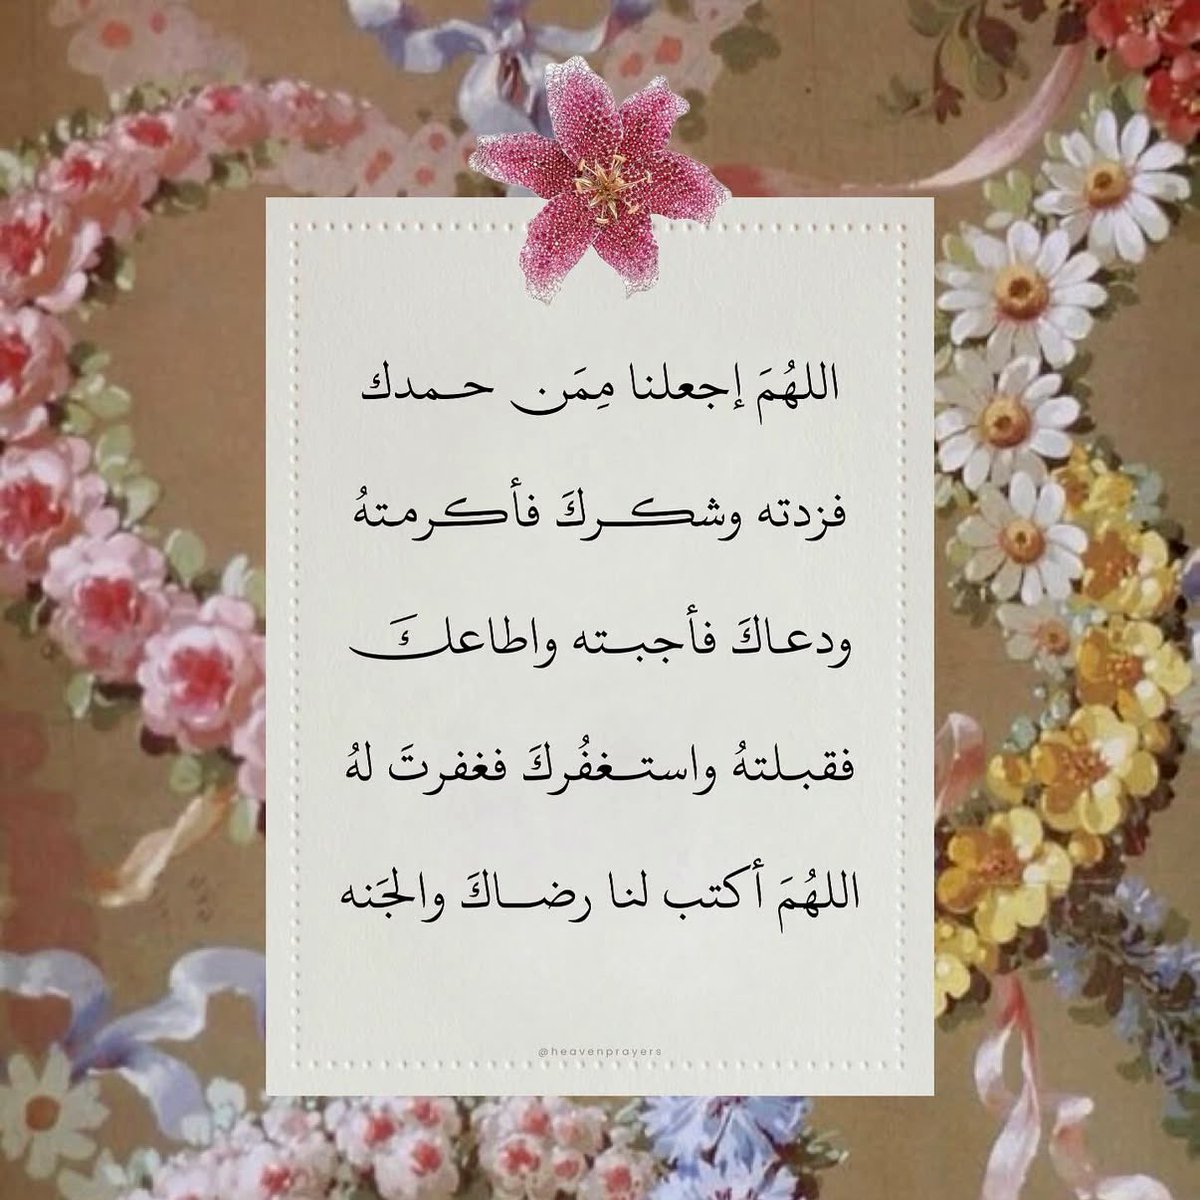 اللهُمَ إجعلنا مِمَن حمدك
فزدته وشكركَ فأكرمتهُ
ودعاكَ فأجبته واطاعكَ
فقبلتهُ واستغفُركَ فغفرتَ لهُ
اللهُمَ أكتب لنا رضاكَ والجَنه
@heavenprayers